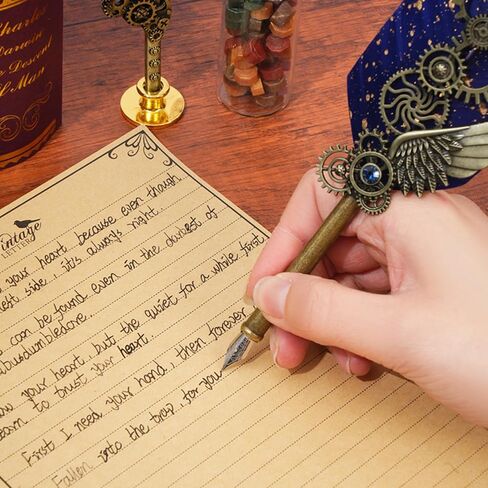 Charles
Darwin
Descent
Man
Vintage
LETTER
your heart because even though
left side, it's always right.
can be found even in the darkest of
your heart, but the quiet for a while first
learn to trust your heart.
First I need your hand, then forever
Fallen into the trap, for you